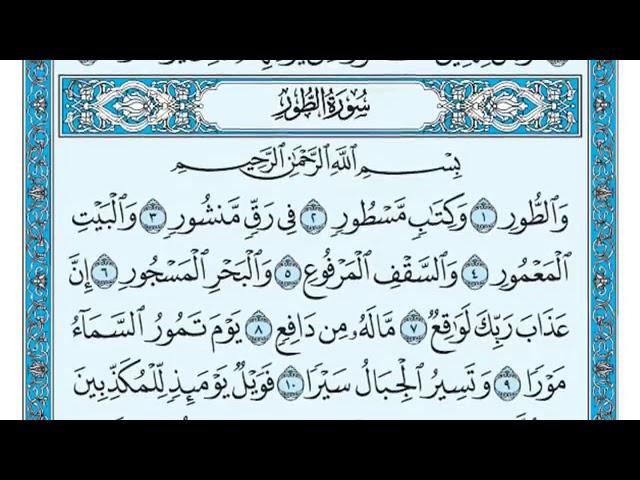 سُورَةُ الطُّورِ
بِسْمِ اللَّهِ الرَّحْمَٰنِ الرَّحِيمِ
وَٱلطُّورِ ١ وَكِتَٰبٖ مَّسۡطُورٖ ٢ فِي رَقّٖ مَّنشُورٖ ٣ وَٱلۡبَيۡتِ
ٱلۡمَعۡمُورِ ٤ وَٱلسَّقۡفِ ٱلۡمَرۡفُوعِ ٥ وَٱلۡبَحۡرِ ٱلۡمَسۡجُورِ ٦ إِنَّ
عَذَابَ رَبِّكَ لَوَٰقِعٞ ٧ مَّا لَهُۥ مِن دَافِعٖ ٨ يَوۡمَ تَمُورُ ٱلسَّمَآءُ
مَوۡرٗا ٩ وَتَسِيرُ ٱلۡجِبَالُ سَيۡرٗا ١٠ فَوَيۡلٞ يَوۡمَئِذٖ لِّلۡمُكَذِّبِينَ